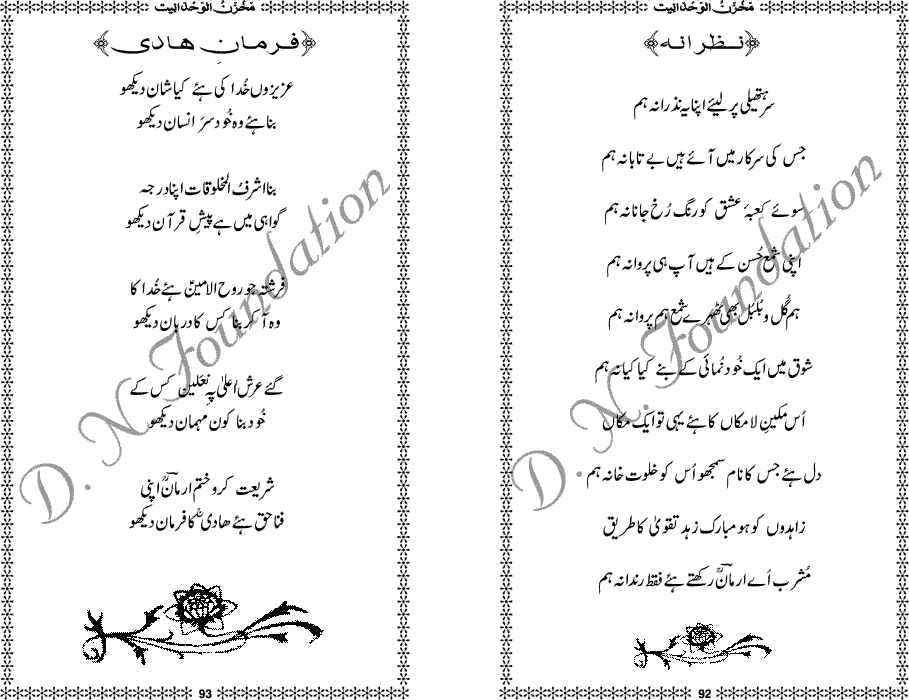 مخزنُ الوحدانیت
نظرانہ
سر ہتھیلی پر لیئے اپنا یہ نذرانہ ہم
جس کی سرکار میں آئے ہیں بے تابانہ ہم
سوئے کعبۂ عشق کو رنگ رُخِ جانانہ ہم
اپنی شمعِ حُسن کے ہیں آپ ہی پروانہ ہم
ہم گُل و بُلبُل بھی ٹھہرے شمع ہم پروانہ ہم
شوق میں ایک خُود نُمائی کے بنے کیا کیا نہ ہم
اُس مکینِ لا مکاں کا ہئے یہی تو ایک مکاں
دل ہئے جس کا نام سمجھو اُس کو خلوت خانہ ہم
زاہدوں کو ہو مبارک زہد تقویٰ کا طریق
مُشرب اَے ارمانؔ رکھتے ہئے فقط رندانہ ہم
92
مخزنُ الوحدانیت
فرمانِ ھادی
عزیزوں خُدا کی ہئے کیا شان دیکھو
بنا ہئے وہ خُود سرَ انسان دیکھو
بنا اشرفُ المخلوقات اپنا درجہ
گواہی میں ہے پیشِ قرآن دیکھو
فرشتہ جو روح الامینؑ ہئے خُدا کا
وہ آکر بنا کس کا دربان دیکھو
گئے عرش اُعلیٰ پہِ نعلین کس کے
خُود بنا کون مہمان دیکھو
شریعت کرو ختم ارمانؔ اپنی
فنا حق ہئے ھادیؒ کا فرمان دیکھو
93
D. N. Foundation
D. N. Foundation